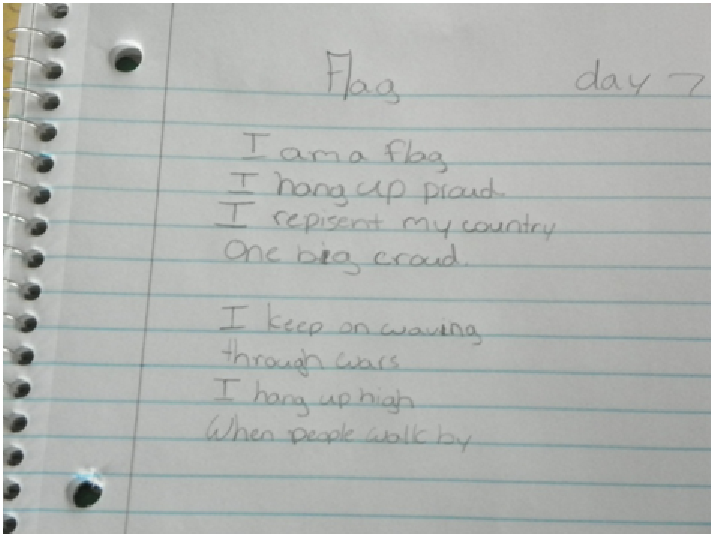 Flag day 7
I am a flag
I hang up proud
I repisent my country
One big croud.
I keep on waving
through wars
I hang up high
When people walk by